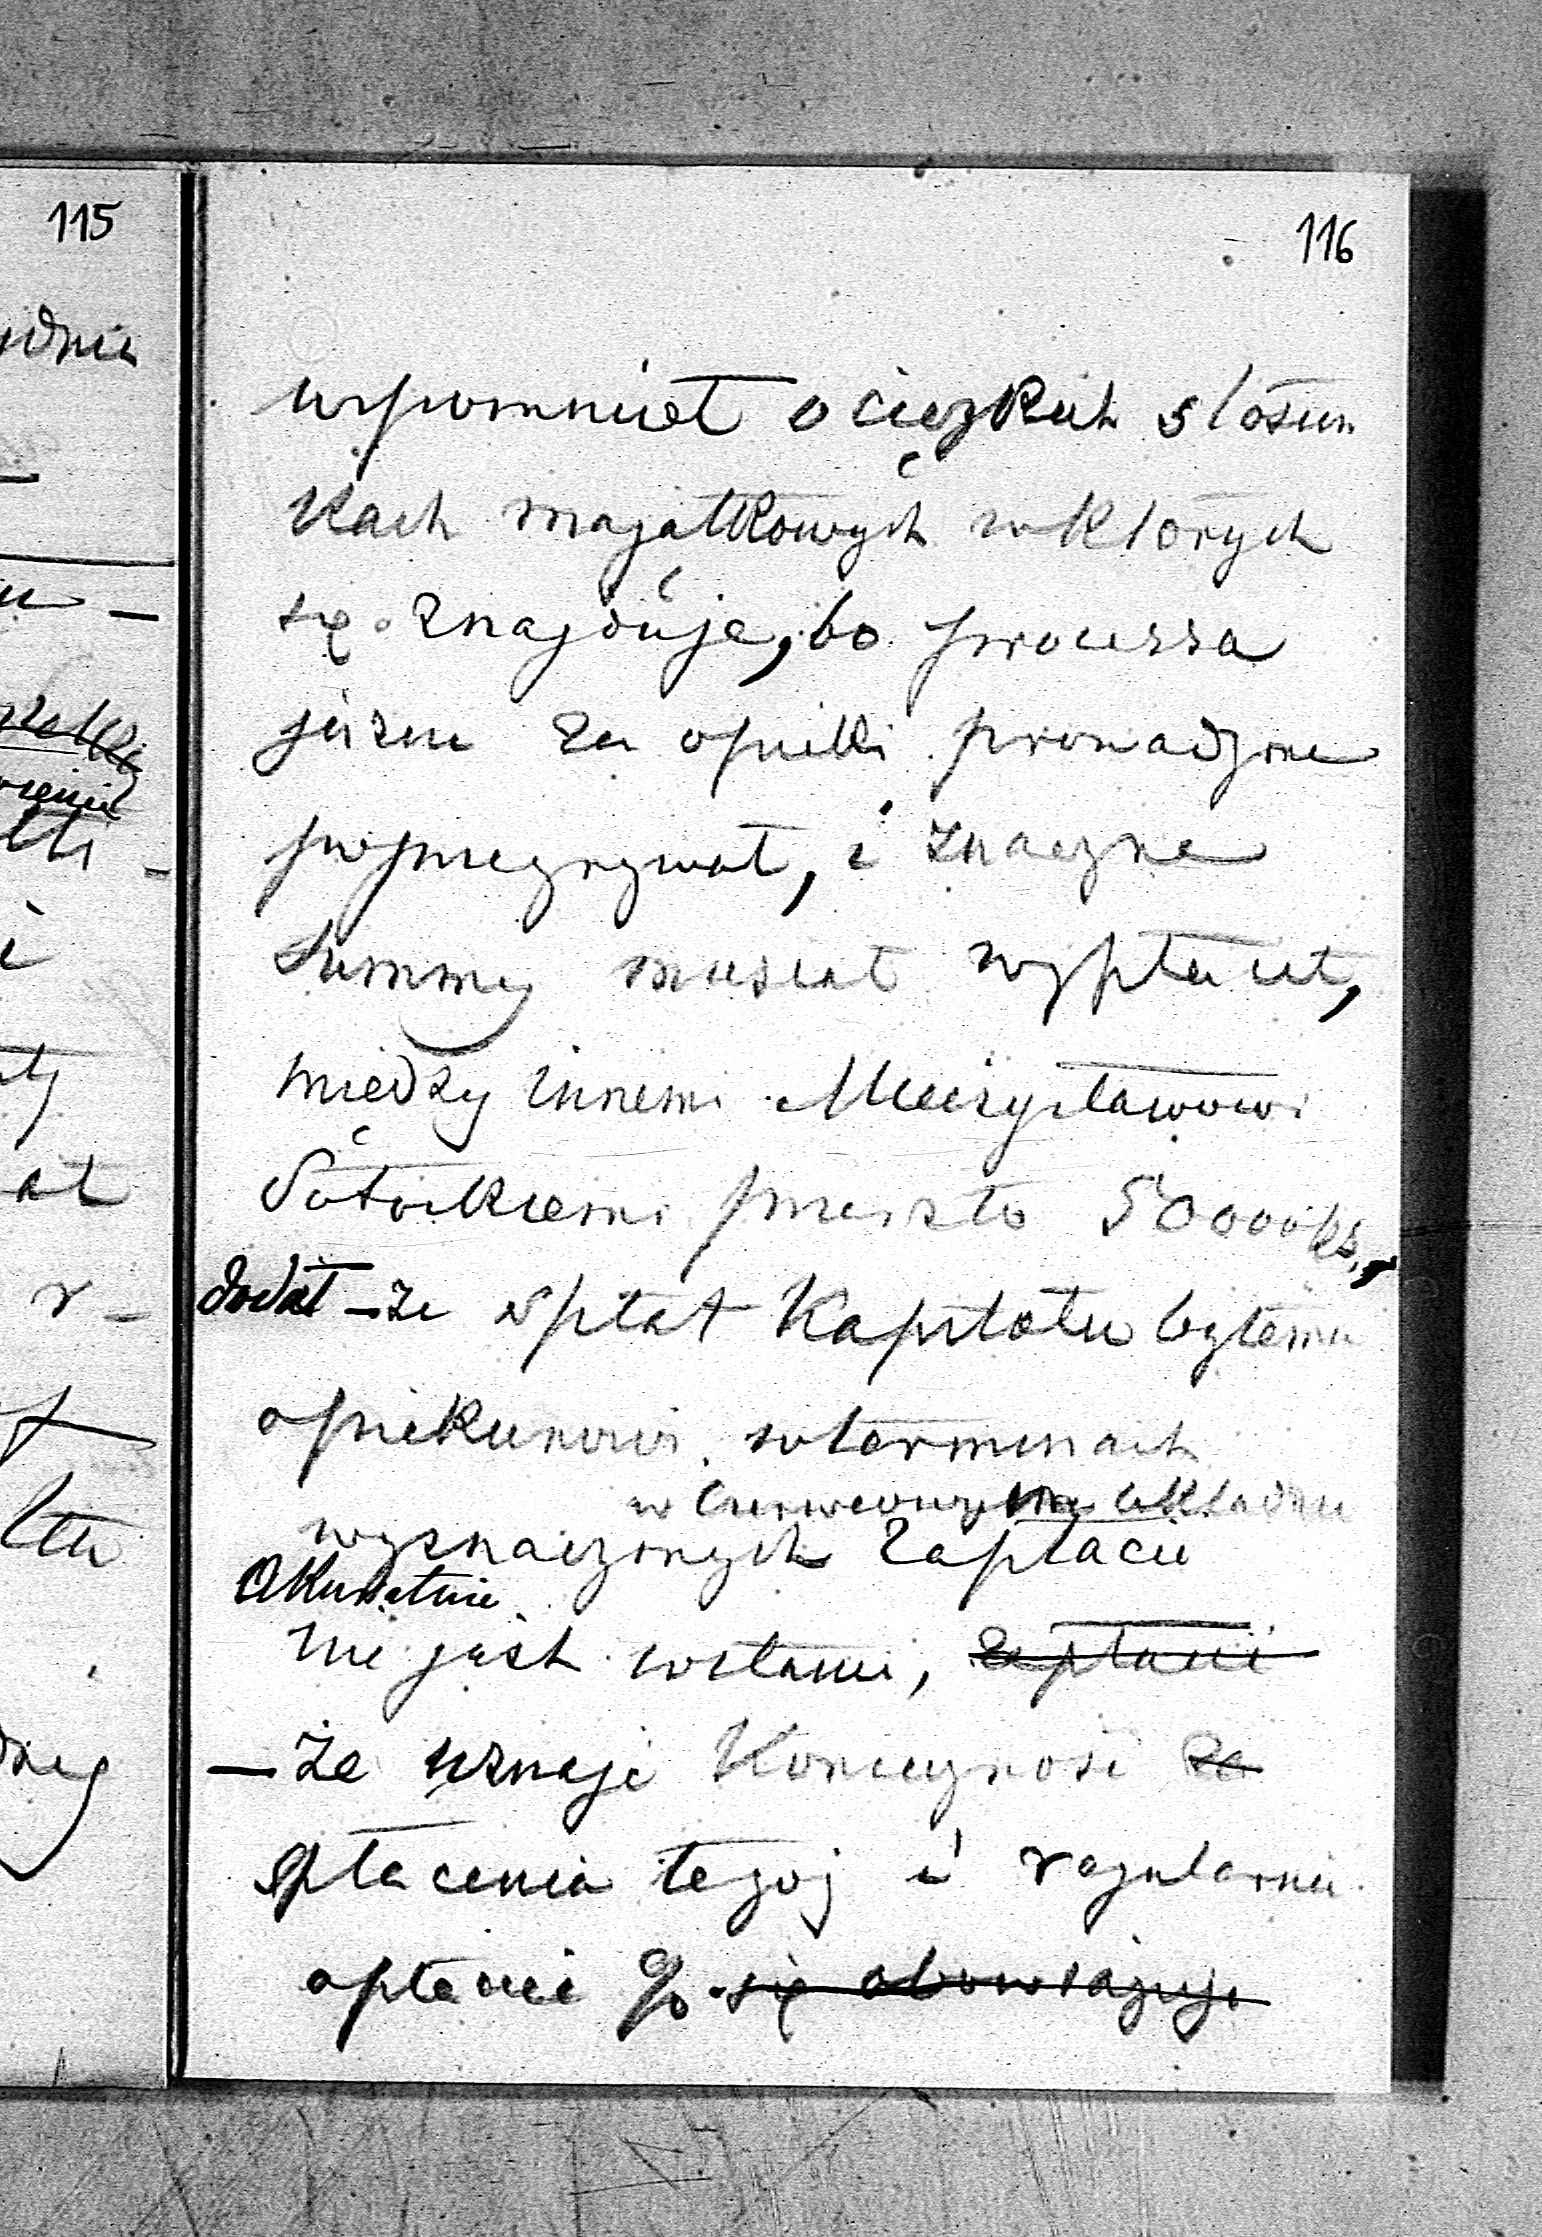 115
116
wspomniał o ciężkich stosun
kach majątkowych w których
się znajduje, bo processa
jeszcze za opieki prowadzone
poprzegrywał, i znaczne
Summy musiał wypłacać,
między innemi Mieczysławowi
Potockiemu przeszło 50000 Rs,
dodał – że spłat Kapitału byłemu
opiekunowi w terminach
w Czerwcowym układzie
wyznaczonych zapłacić
akuratnie
nie jest wstanie, zapłacić
– że uznaje Konieczność za
płacenia tegoż i regularnie
opłacać % się obowiązuje